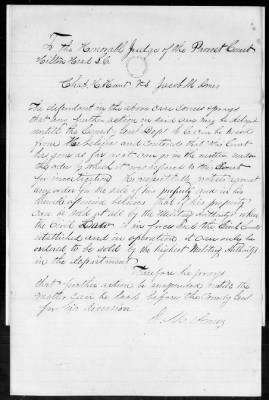 To the Honorable Judge of the Provost Court
Hilton Head S.C.
Chas. H. Hunt VS Jacob M. Ames
The defendant in the above case comes & prays
that any further action in said case may be delayed
untill the Comdg Genl Dept So Ca can be heard
from. He believes and contends that this Court
has gone as far as it can go in the matter under
the order by which it was refered to this Court
for investigation. He respectfully protests against
any order for the sale of his property and in his
humble opinion believes that if his property
can be sold at all by the Military Authority when
the civil Law is in force and the Civil Courts
established and in operation it can only be
ordered to be sold by the highest Military Authority
in the department
Therefore he prays
that further action be suspended untill the
matter can be laid before the Comdg Genl
for his decision
J. M. Ames